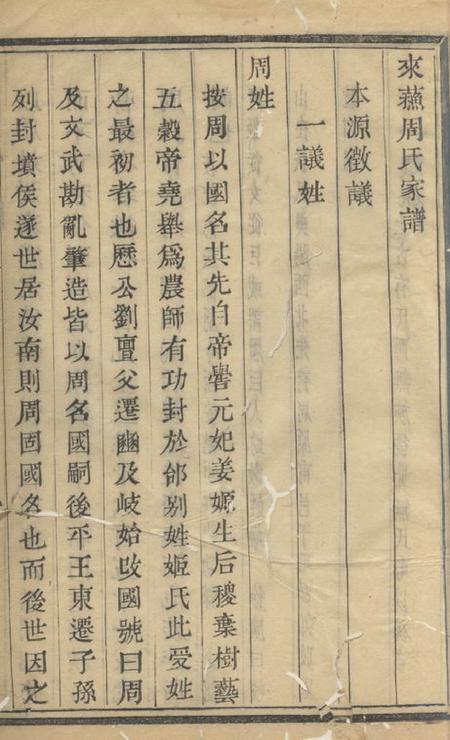 來蘇周氏家譜
本源徵議
一議姓
周姓
按周以國名其先自帝嚳元妃姜嫄生后稷棄樹藝
五穀帝堯舉爲農師有功封於邰别姓姬氏此受姓
之最初者也歷公劉亶父遷豳及岐始改國號曰周
及文武勘亂肇造皆以周名國嗣後平王東遷子孫
列封墳侯遂世居汝南則周固國名也而後世因之